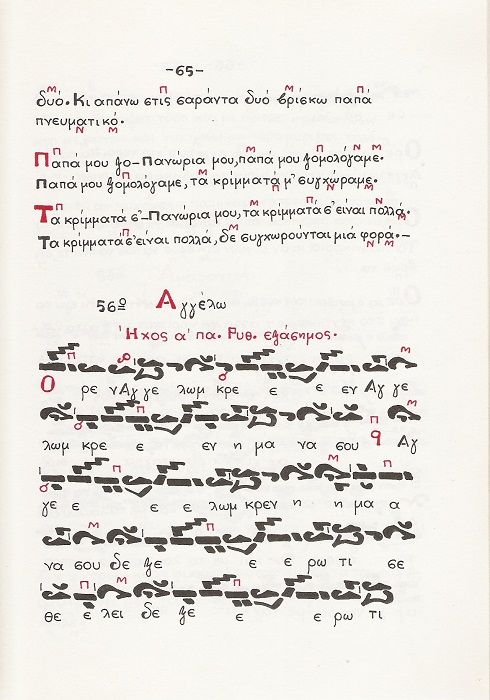 -65-
δυό. Κι απάνω στις σαράντα δυό βρίσκω παπά
πνευματικό.
Παπά μου ξο-Πανώρια μου, παπά μου ξομολόγαμε.
Παπά μου ξομολόγαμε, τα κρίμματά μ' συγχώραμε.
Τα κρίμματά σ'-Πανώρια μου, τα κρίμματά σ' είναι πολλά.
Τα κρίμματά σ' είναι πολλά, δε συγχωρούνται μιά φορά.-
56ο Αγγέλω
Ήχος α' πα. Ρυθ. εξάσημος.
Ο ρε ν Αγ γε λωμ κρε ε ε εν Αγ γε
λωμ κρε ε εν η μα να σου Αγ
γε ε ε ε λωμ κρεν η η μα α
να σου δε ξε ε ε ρω τι σε
θε ε λει δε ξε ε ε ρω τι